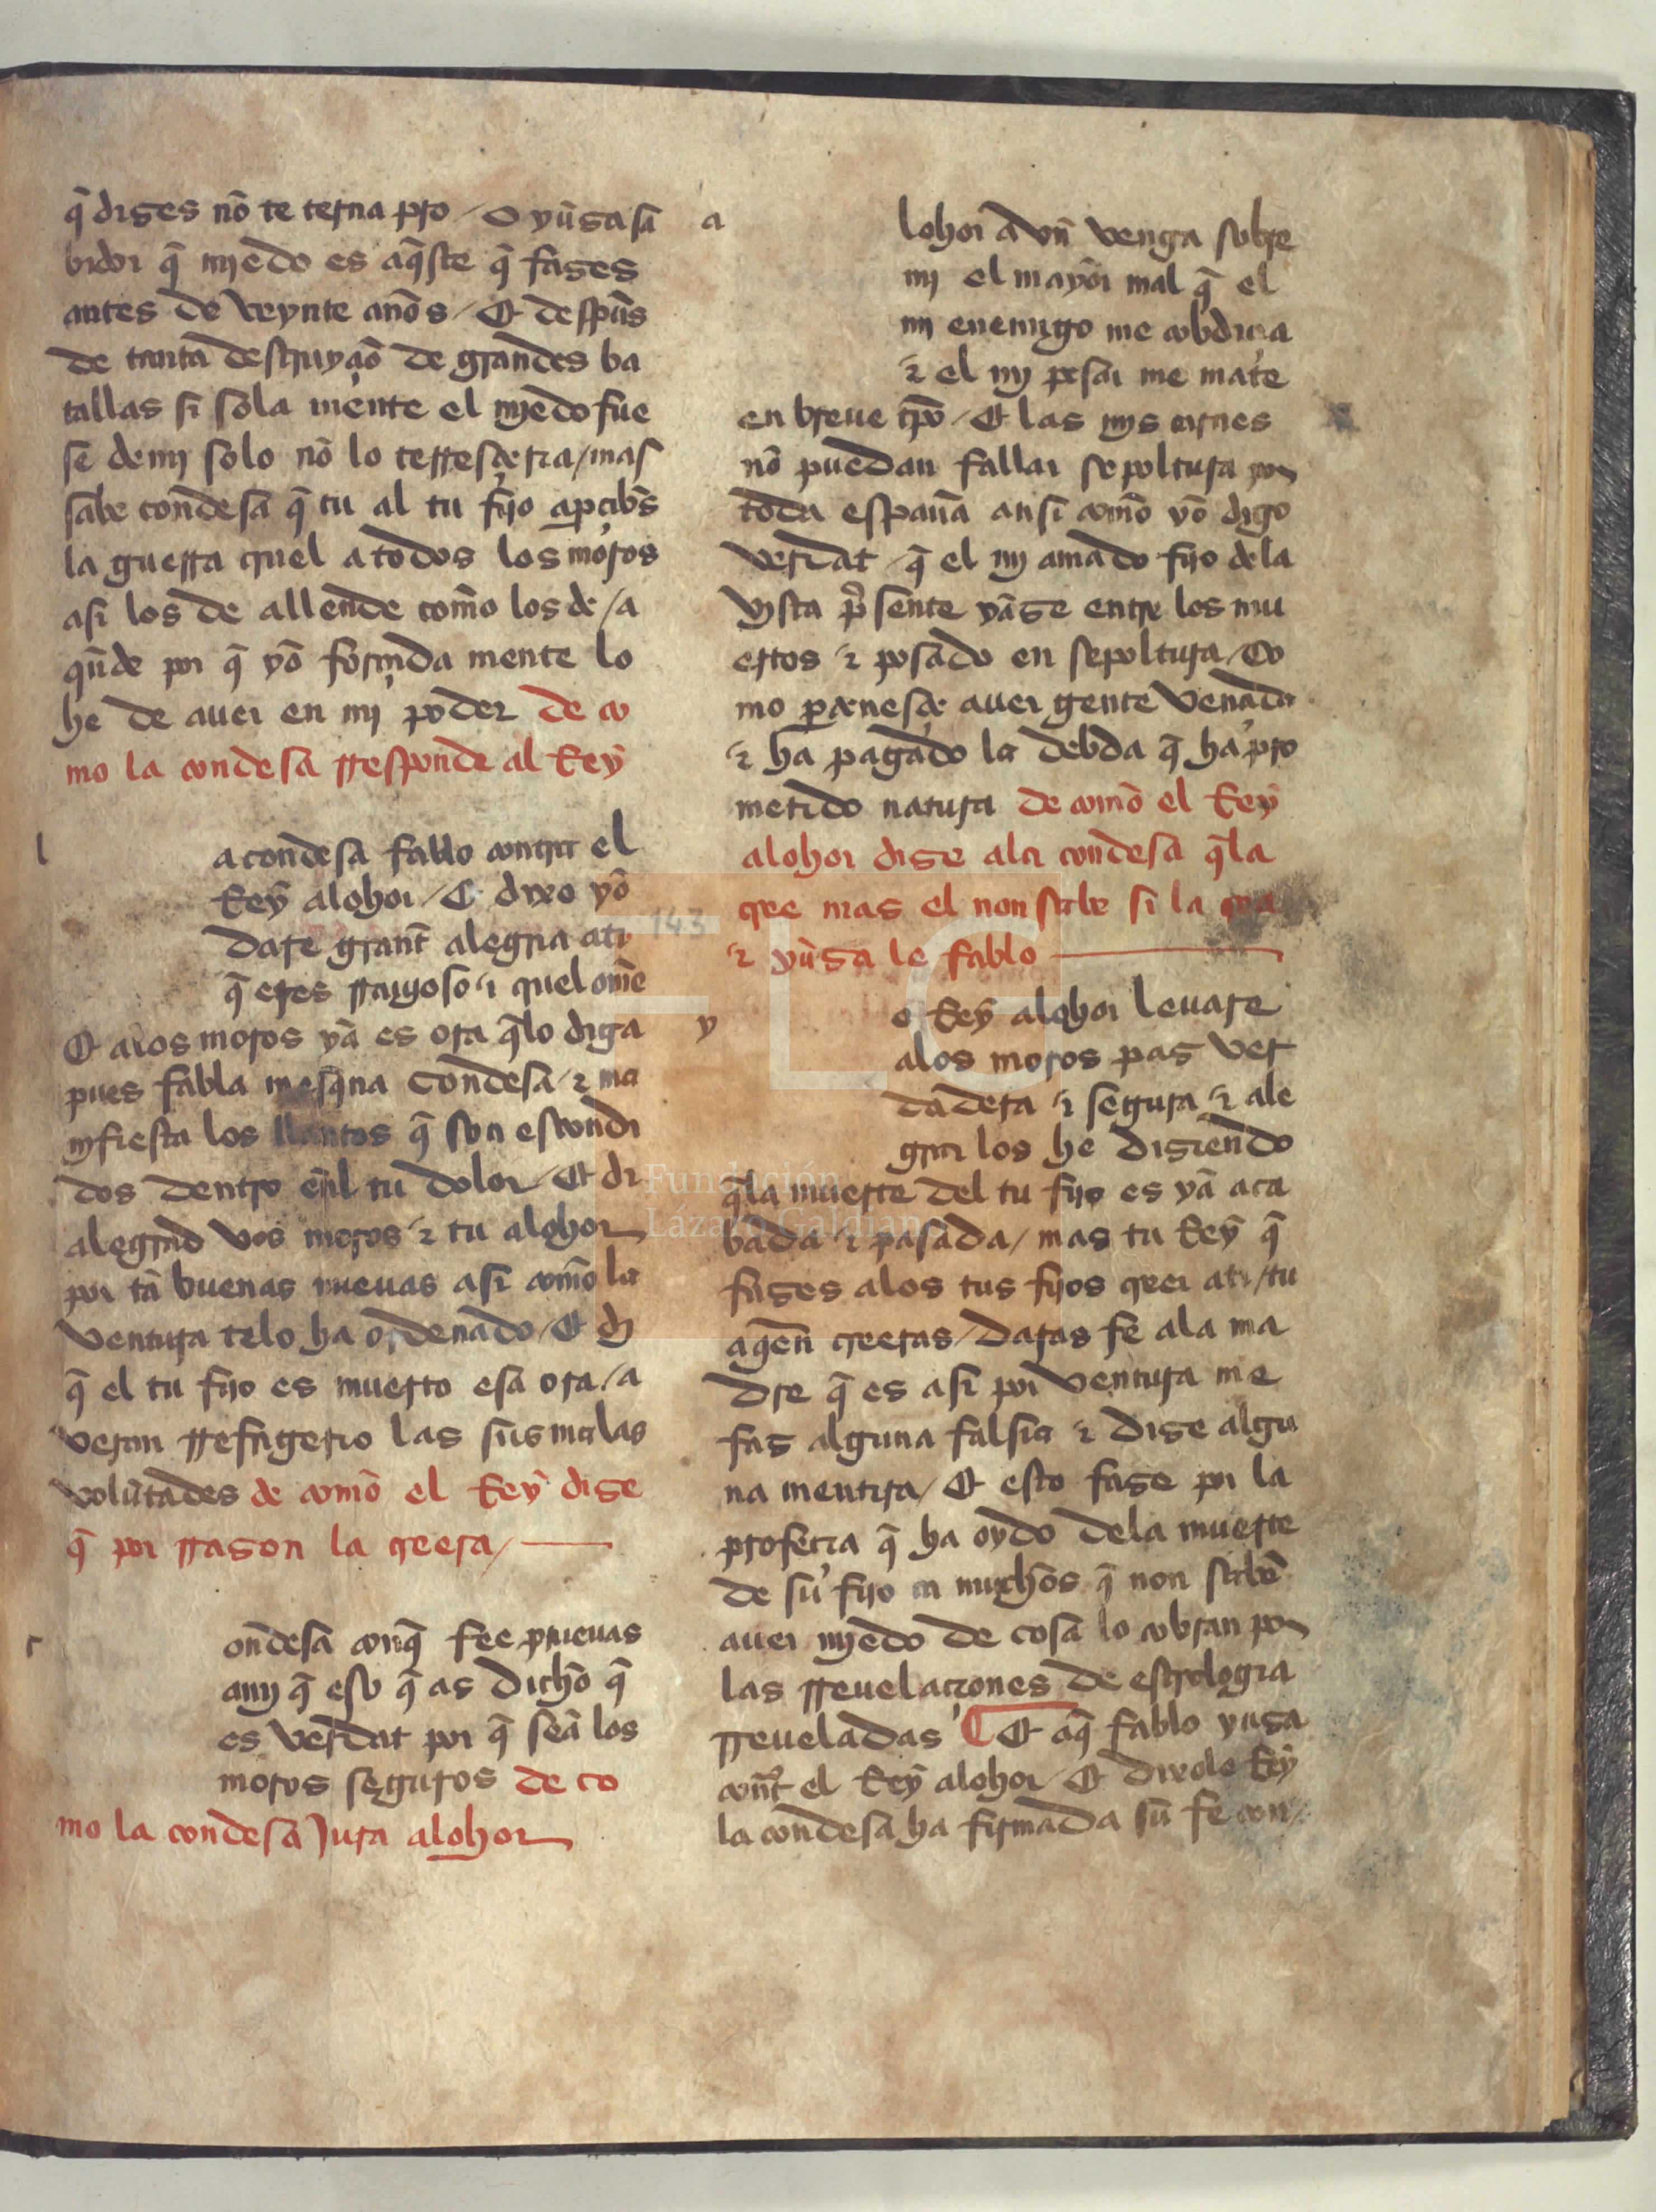 q̃ dizes nõ te terna pro / O yũça sa
bidor q̃ mjedo es aq̃ste q̃ fazes
antes de veynte años / Et despũs
de tanta destruyçiõ de grandes ba
tallas si sola mente el mjedo fue
se de mj solo nõ lo terresçeria / mas
sabe condesa q̃ tu al tu fijo aperçibes
la guerra quel a todos los moros
asi los de allende como los de / a
quende por q̃ yo forçada mente lo
he de auer en mj poder de co
mo la condesa rresponde al Rey
l
a condesa fablo contra el
Rey alohor / Et dixo yo
dare grant alegria a ti
q̃ eres rrauyoso ⁊ quel ome
Et a los moros ya es ora q̃ lo diga
pues fabla mesq̃na condesa ⁊ ma
njfiesta los llantos q̃ son escondi
dos dentro enl tu dolor / Et di
alegrad vos moros ⁊ tu alohor
por tã buenas nueuas asi como la
ventura telo ha ordenado / Et di
q̃ el tu fijo es muerto esa ora / a
veran rrefrigerio las sus malas
volũtades de como el Rey dize
q̃ por rrazon la creera /
c
ondesa con q̃ fee prueuas
a mj q̃ eso q̃ as dicho q̃
es verdat por q̃ seã los
moros seguros de co
mo la condesa Jura alohor
a
lohor avñ venga sobre
mj el mayor mal q̃ el
mi enemigo me cobdiçia
⁊ el mj pesar me mate
en breue tpõ / Et las mjs carnes
nõ puedan fallar sepoltura por
toda españa ansi como yo digo
verdat / q̃ el mj amado fijo de la
vista presente yaze entre los mu
ertos ⁊ posado en sepoltura / Co
mo pertenesçe auer gente vençida
⁊ ha pagado la debda q̃ ha pro
metido natura de como el Rey
alohor dize a la condesa q̃ la
cree mas el non sabe si la crea
⁊ yũça le fablo
y
o Rey alohor leuare
a los moros paz ver
dadera ⁊ segura ⁊ ale
grar los he diziendo
q̃ la muerte del tu fijo es ya aca
bada ⁊ pasada / mas tu Rey q̃
fazes a los tus fijos creer a ti / tu
a quen creeras / daras fe a la ma
dre q̃ es asi por ventura me
faz alguna falsia ⁊ dize algu
na mentira / Et esto faze por la
profeçia q̃ ha oydo de la muerte
de su fijo ca muchos q̃ non saben
auer mjedo de cosa lo cobran por
las rreuelaciones de estrologia
rreueladas ¶ Et aq̃ fablo yuça
contra el Rey alohor / Et dixo le Rey
la condesa ha firmada su fe con
143
FLG
Fundación
Lázaro Galdiano